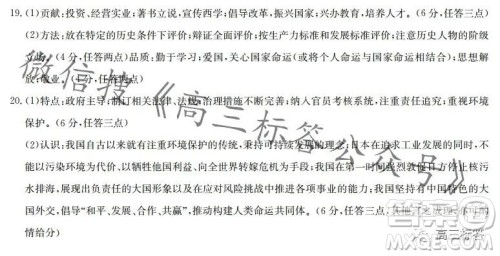 19.(1)贡献:投资、经营实业;著书立说,宣传西学;倡导改革,振兴国家;兴办教育,培养人才。(6分,任答三点)
(2)方法:放在特定的历史条件下评价;辩证全面评价;按生产力标准和发展观点评价;注意历史人物的阶级
(4分,任答两点)品质:勤于学习;爱国,关心国家命运(或将个人命运与国家命运相结合);思想解
放;敬业。(4分,任答两点)
20.(1)特点:政府主导;制订相关法律、法规,治理措施不断完善;纳入官员考核系统,注重责任追究;重视环境
保护。(6分,任答三点)
(2)认识:我国自古以来就有注重环境保护的传统,秉持可持续发展的理念;日本在追求工业发展的同时,不
能以污染环境为代价、以牺牲他国利益、向全世界转嫁危机为手段;我国在第一时间强烈敦促日方停止核污
水排海,展现出负责任的大国形象以及在应对风险挑战中推进各项事业的能力;我国坚持有中国特色的大
国外交,倡导“和平、发展、合作、共赢”,推动构建人类命运共同体。(6分,任答三点,
情给分)
微信搜《高三标答公众号》
高三标答